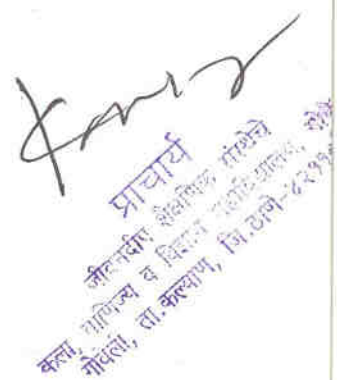 प्राचार्य
जीवनदीप शैक्षणिक संस्थेचे
कला, वाणिज्य व विज्ञान महाविद्यालय,
गोवेली, ता. कल्याण, जि. ठाणे-४२११